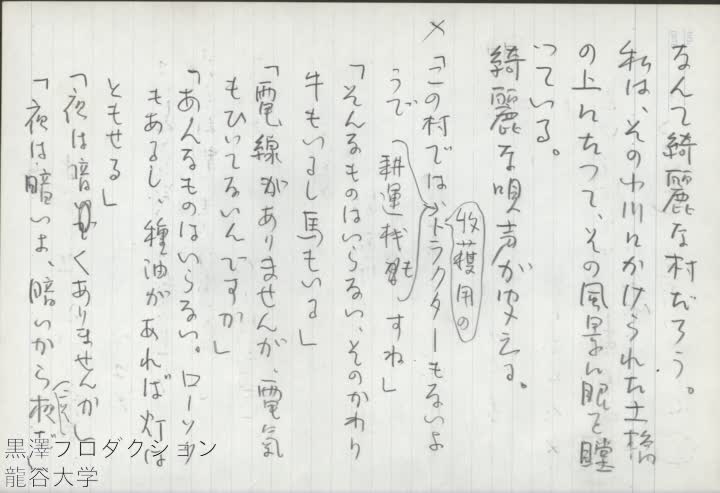 なんて綺麗な村だろう。
私は、その小川にかけられた土橋
の上に立って、その風景に眼を瞠
っている。
綺麗な唄声が聞える。
×「この村ではトラクターもないよ
収穫用の
うで 耕運機も すね」
「そんなものはいらない、そのかわり
牛もいるし馬もいる」
「電線がありませんが、電気
もひいてないんですか」
「あんなものはいらない。ローソク
もあるし、種油があれば灯は
ともせる」
「夜は暗くありませんか」
「夜は暗いよ、暗いから夜だ
黒澤プロダクション
龍谷大学